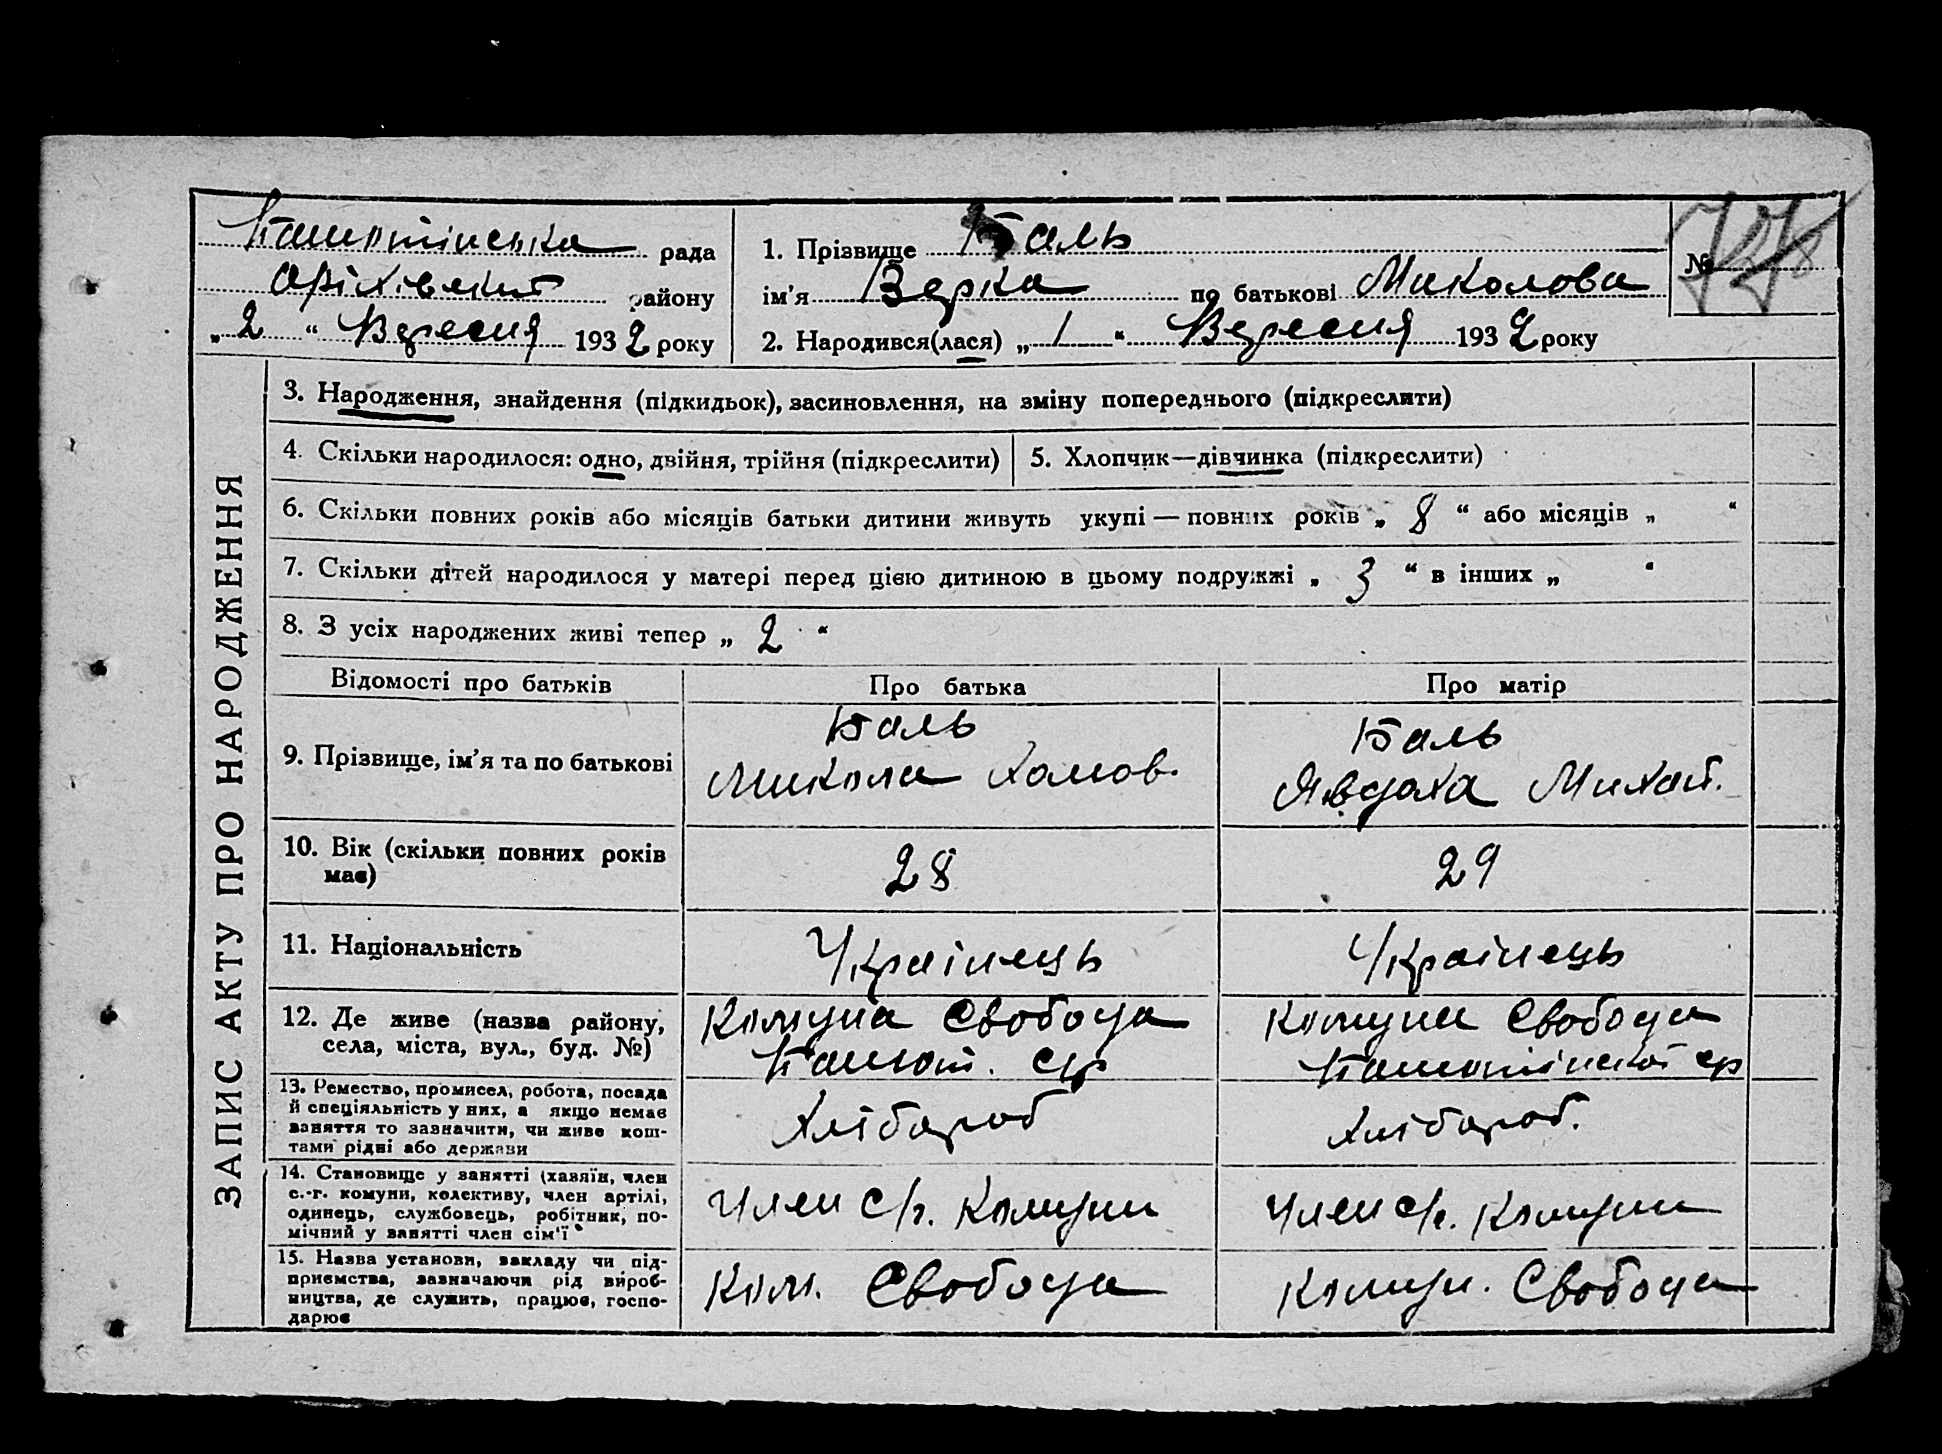 Кашотінська рада
Оріхівський району
„ 2 “ Вересня 1932 року
1. Прізвище Баль
ім'я Верка по батькові Миколова
№
2. Народився(лася) „ 1 “ Вересня 1932 року
ЗАПИС АКТУ ПРО НАРОДЖЕННЯ
3. Народження, знайдення (підкидьок), засиновлення, на зміну попереднього (підкреслити)
4. Скільки народилося: одно, двійня, трійня (підкреслити)
5. Хлопчик—дівчинка (підкреслити)
6. Скільки повних років або місяців батьки дитини живуть укупі — повних років „ 8 “ або місяців „ “
7. Скільки дітей народилося у матері перед цією дитиною в цьому подружжі „ 3 “ в інших „ “
8. З усіх народжених живі тепер „ 2 “
Відомості про батьків
Про батька
Про матір
9. Прізвище, ім'я та по батькові
Баль
Микола Хомов.
Баль
Явдоха Михай.
10. Вік (скільки повних років
має)
28
29
11. Національність
Українець
Українець
12. Де живе (назва району,
села, міста, вул., буд. №)
Комуна Свобода
с/р
Комуна Свобода
с/р
13. Ремество, промисел, робота, посада
й спеціяльність у них, а якщо немає
заняття то зазначити, чи живе кош-
тами рідні або держави
Хлібороб
Хлібороб.
14. Становище у занятті (хазяїн, член
с.-г. комуни, колективу, член артілі,
одинець, службовець, робітник, по-
мічний у занятті член сім'ї
Член с/г. Комуни
Член с/г. Комуни
15. Назва установи, закладу чи під-
приємства, зазначаючи рід вироб-
ництва, де служить, працює, госпо-
дарює
Ком. Свобода
Комун. Свобода